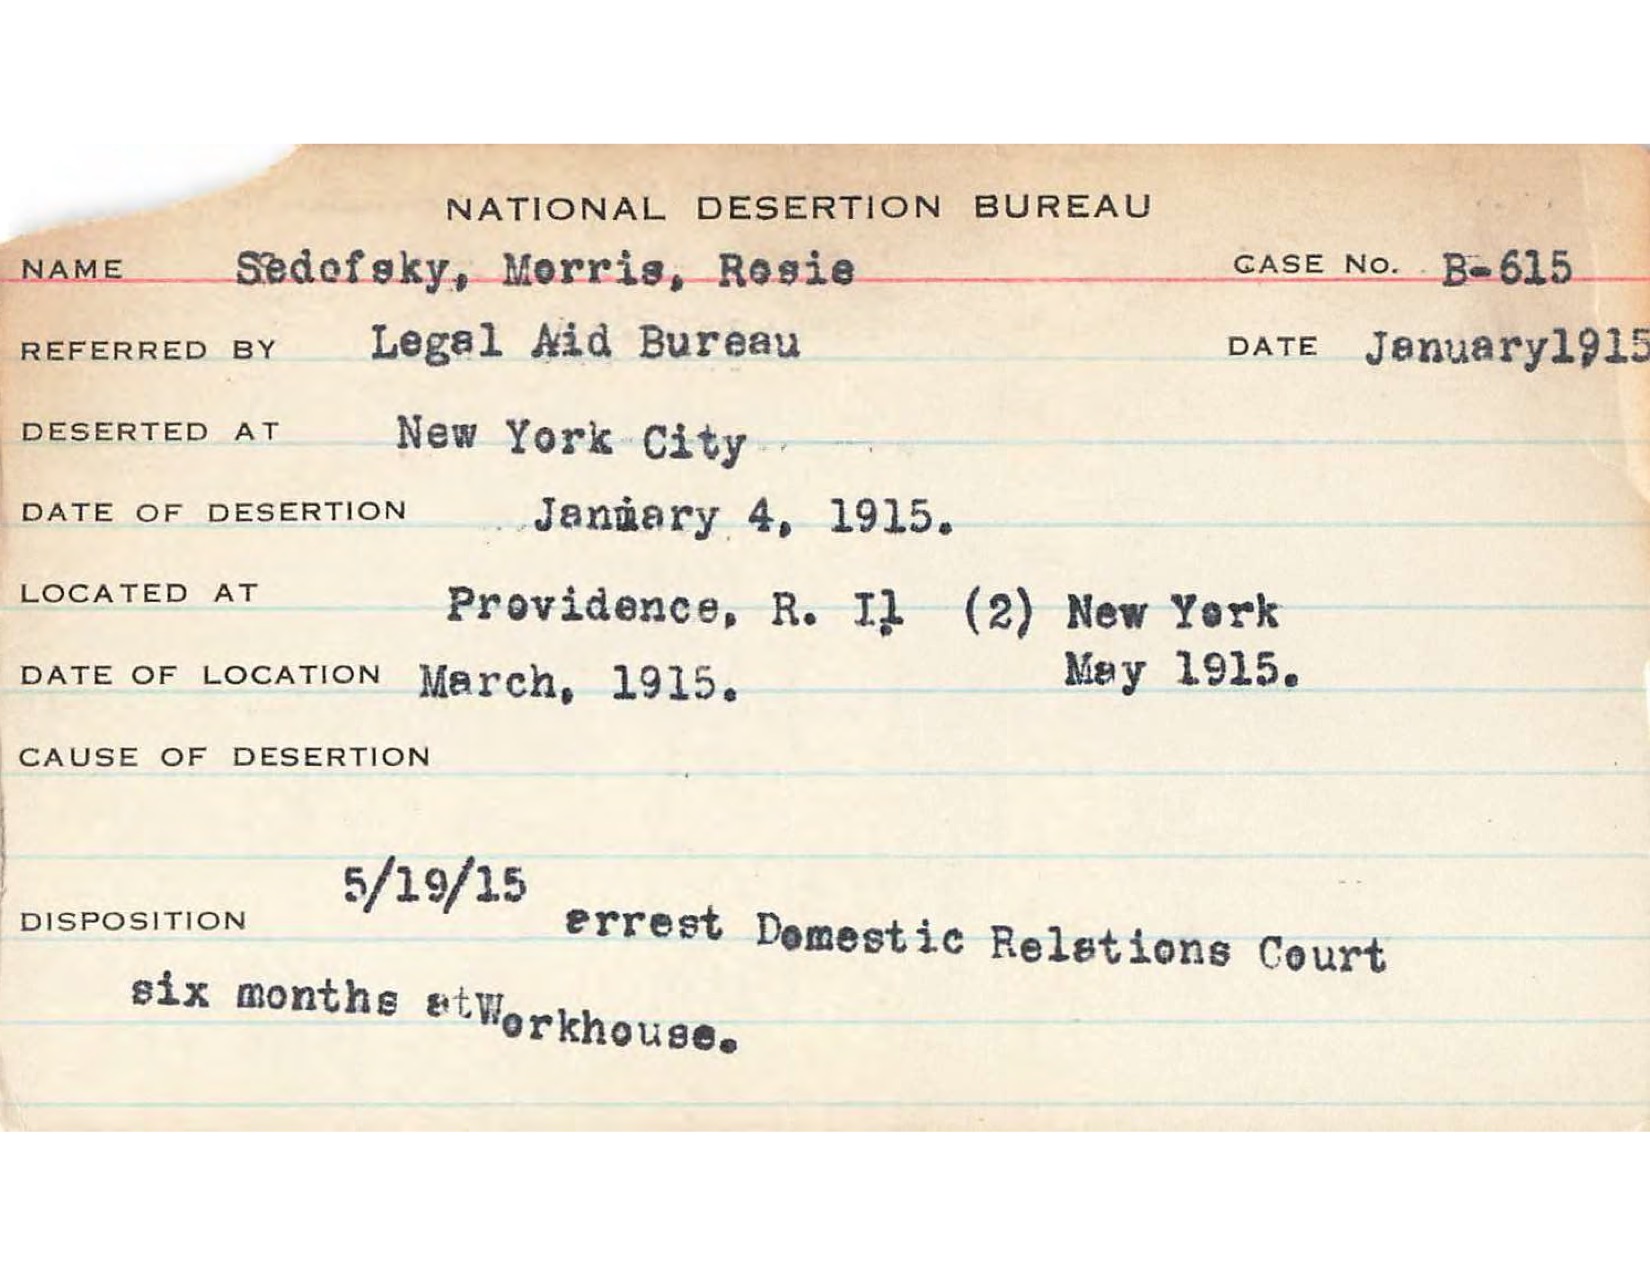 NATIONAL DESERTION BUREAU
NAME Sedofsky, Morris, Rosie CASE No. B-615
REFERRED BY Legal Aid Bureau DATE January1915
DESERTED AT New York City
DATE OF DESERTION January 4, 1915.
LOCATED AT Providence, R. I. (2) New York
DATE OF LOCATION March, 1915. May 1915.
CAUSE OF DESERTION
5/19/15
DISPOSITION arrest Domestic Relations Court
six months at Workhouse.